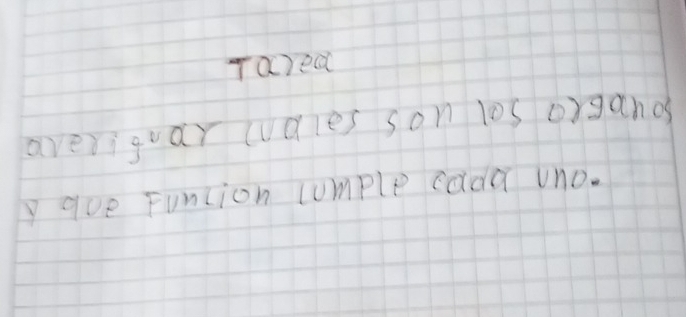 Tarea
averiguar cuales son los organos
y que Funcion cumple cada uno.